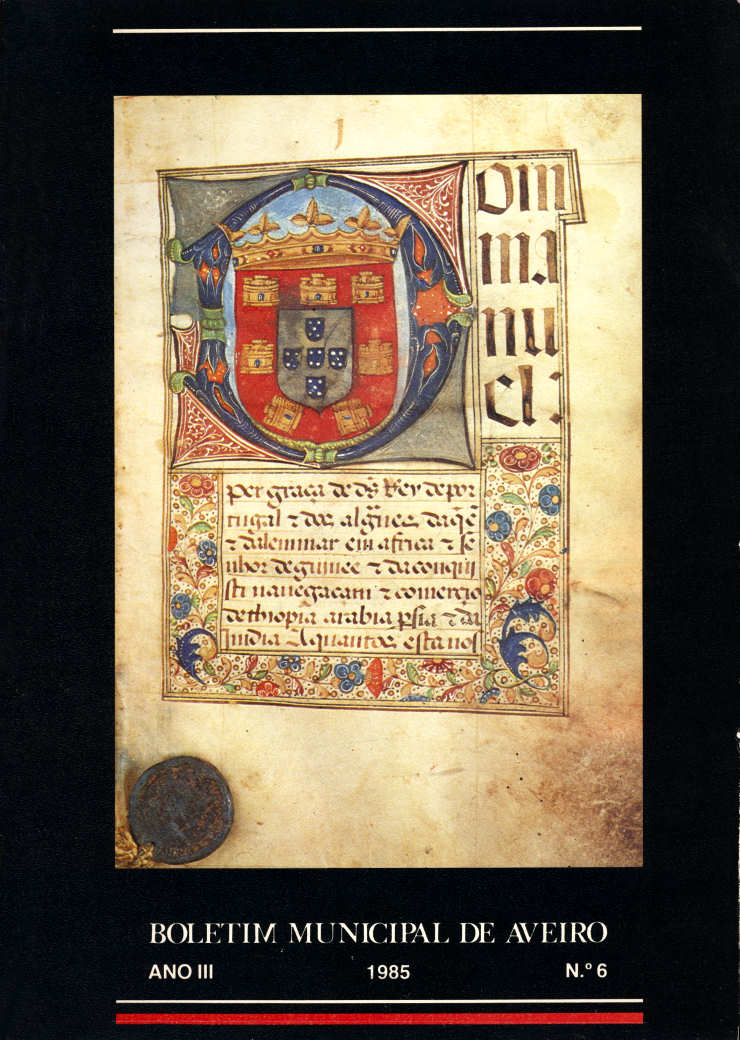 Dom
ma
nu
el:
per graça de ds Rey de por
tugal & dos alguẽs daquẽ
& dalem mar em africa & se
nhor de guinee & da conqui
sti navegaçam & comerçio
dethiopia arabia psia & da
India A quantos esta nos
BOLETIM MUNICIPAL DE AVEIRO
ANO III 1985 N.º 6